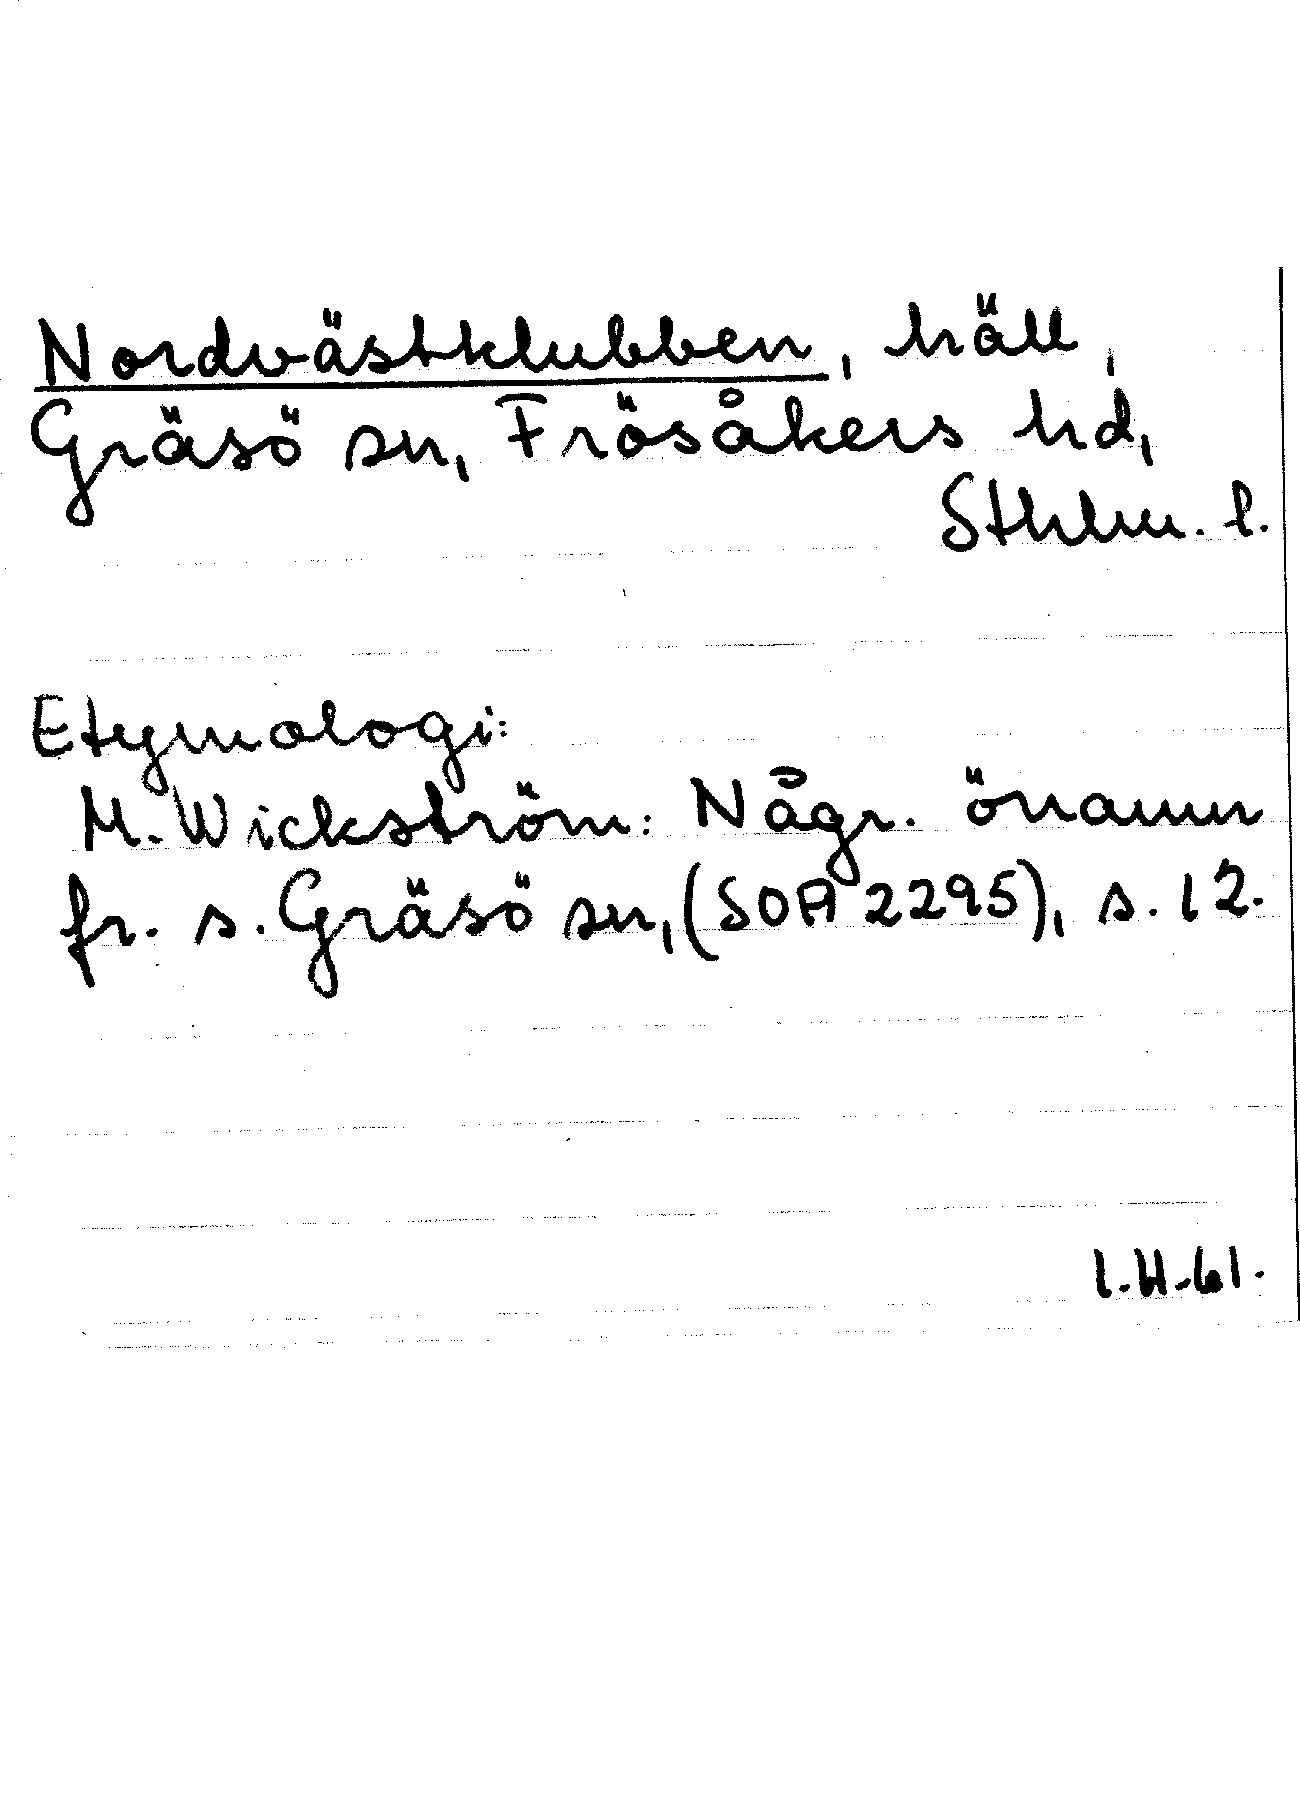 Nordvästklubben, häll,
Gräsö sn, Frösåkers hd,
Sthlm. l.
Etymologi:
M. Wickström: Någr. önamn
fr. s. Gräsö sn, (SOA 2295), s. 12.
I.H.61.